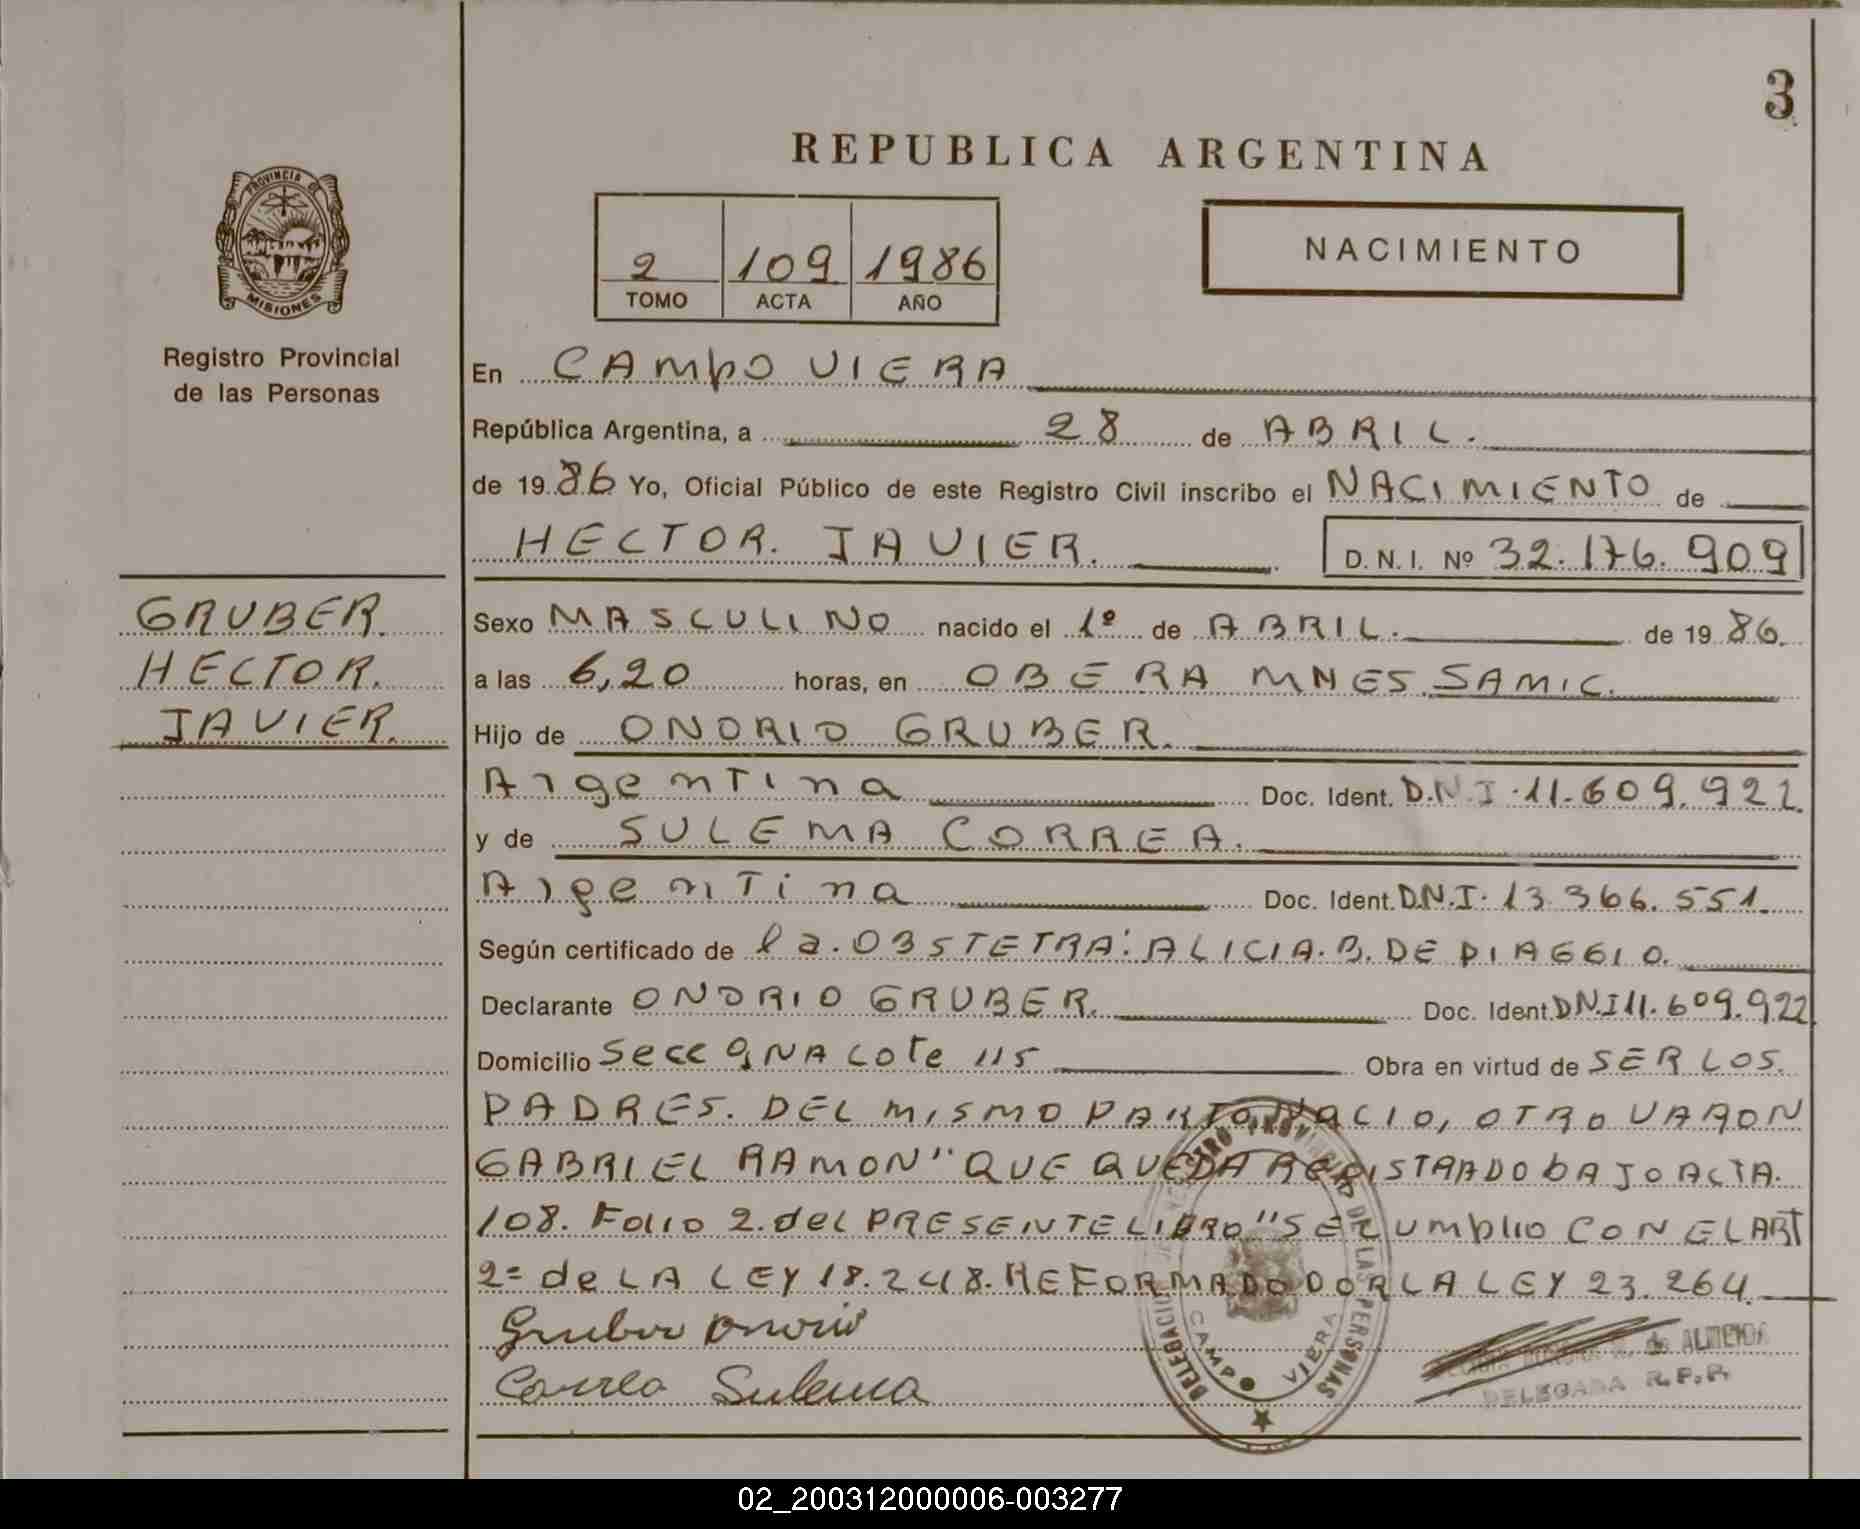 3
REPUBLICA ARGENTINA
PROVINCIA DE
MISIONES
Registro Provincial
de las Personas
2 109 1986
TOMO ACTA AÑO
NACIMIENTO
En CAMPO VIERA
República Argentina, a 28 de ABRIL.
de 19 86 Yo, Oficial Público de este Registro Civil inscribo el NACIMIENTO de
HECTOR. JAVIER.
D. N. I. Nº 32.176.909
GRUBER.
HECTOR.
JAVIER.
Sexo MASCULINO nacido el 1º de ABRIL. de 19 86.
a las 6,20 horas, en OBERA MNES. SAMIC.
Hijo de ONORIO GRUBER.
Argentina Doc. Ident. D.N.I. 11.609.922.
y de SULEMA CORREA.
Argentina Doc. Ident. D.N.I. 13.366.551.
Según certificado de la. OBSTETRA: ALICIA. B. DE PIAGGIO.
Declarante ONORIO GRUBER. Doc. Ident. DN.I 11.609.922
Domicilio Secc 9NA LOTE 115 Obra en virtud de SER LOS.
PADRES. DEL MISMO PARTO NACIO, OTRO VARON
GABRIEL RAMON" QUE QUEDA REGISTRADO BAJO ACTA.
108. FOLIO 2. del PRESENTE LIBRO" SE CUMPLIO CON EL ART
2º de LA LEY 18.248. REFORMADO POR LA LEY 23.264.
Gruber Onorio
Correa Sulema
DE LAS PERSONAS
CAMPO VIERA
de ALMEIDA
DELEGADA R.P.P.
02_200312000006-003277